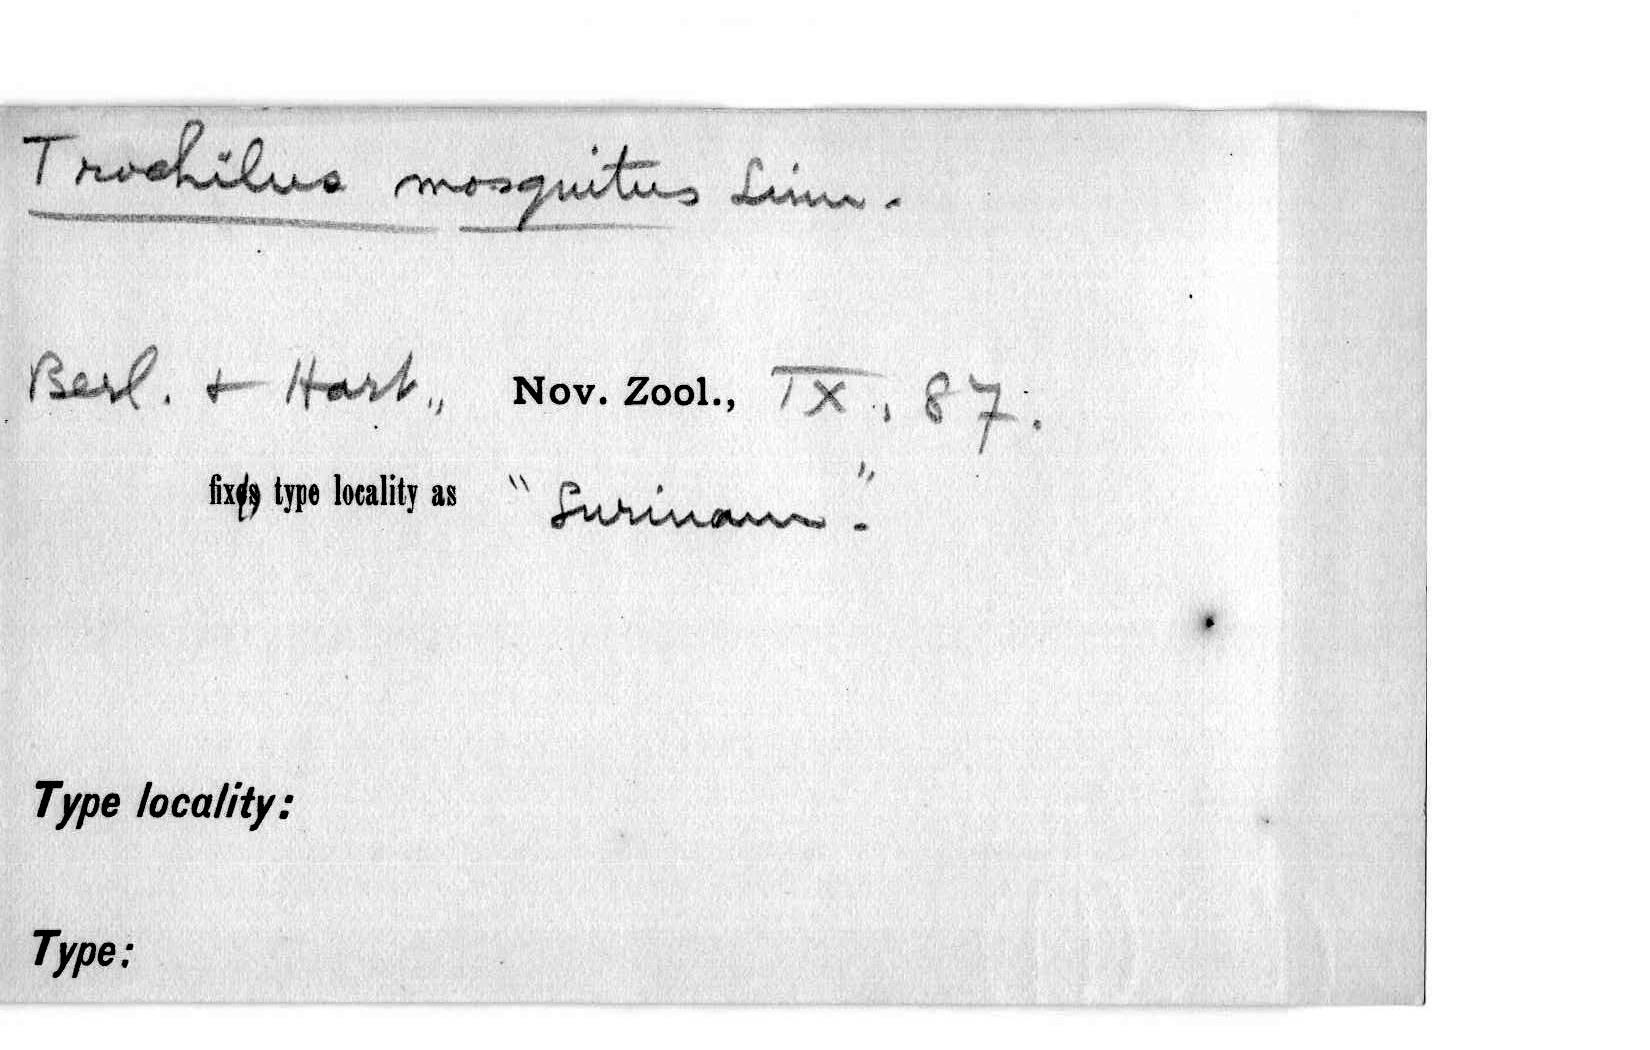 Trochilus mosquitus Linn.
Berl. + Hart., Nov. Zool., IX, 87.
fix type locality as "Surinam".
Type locality:
Type: